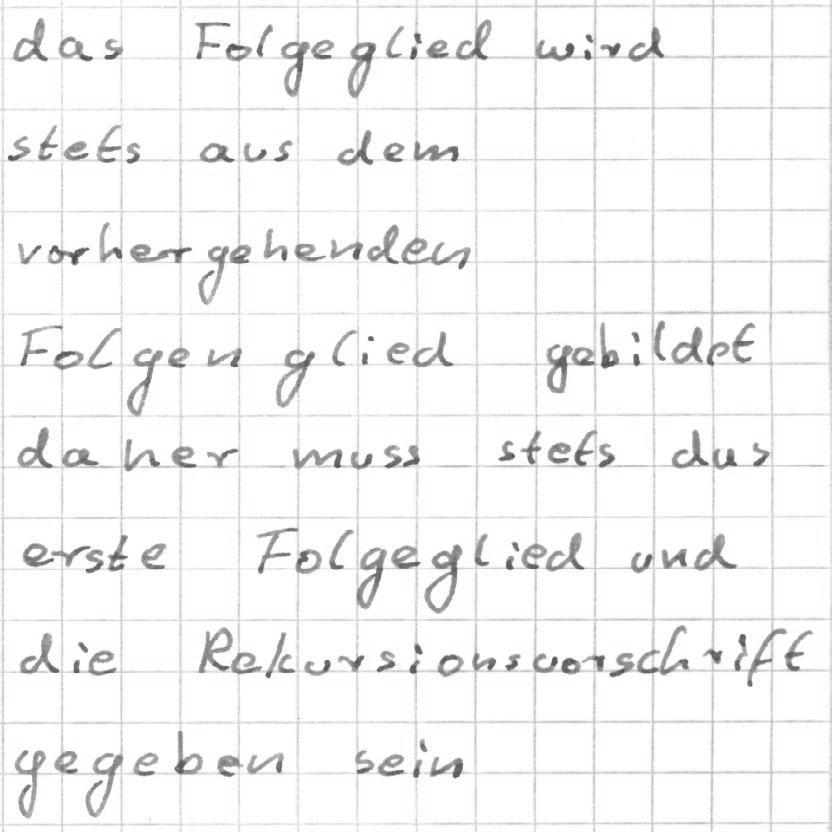 das Folgeglied wird
stets aus dem
vorhergehenden
Folgenglied gebildet
daher muss stets das
erste Folgeglied und
die Rekursionsvorschrift
gegeben sein